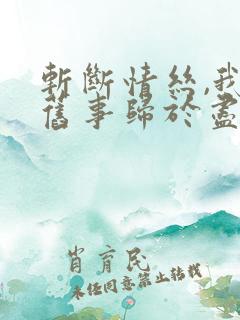 斬斷情絲,我
舊事歸於盡
肯育民
未经同意禁止转载